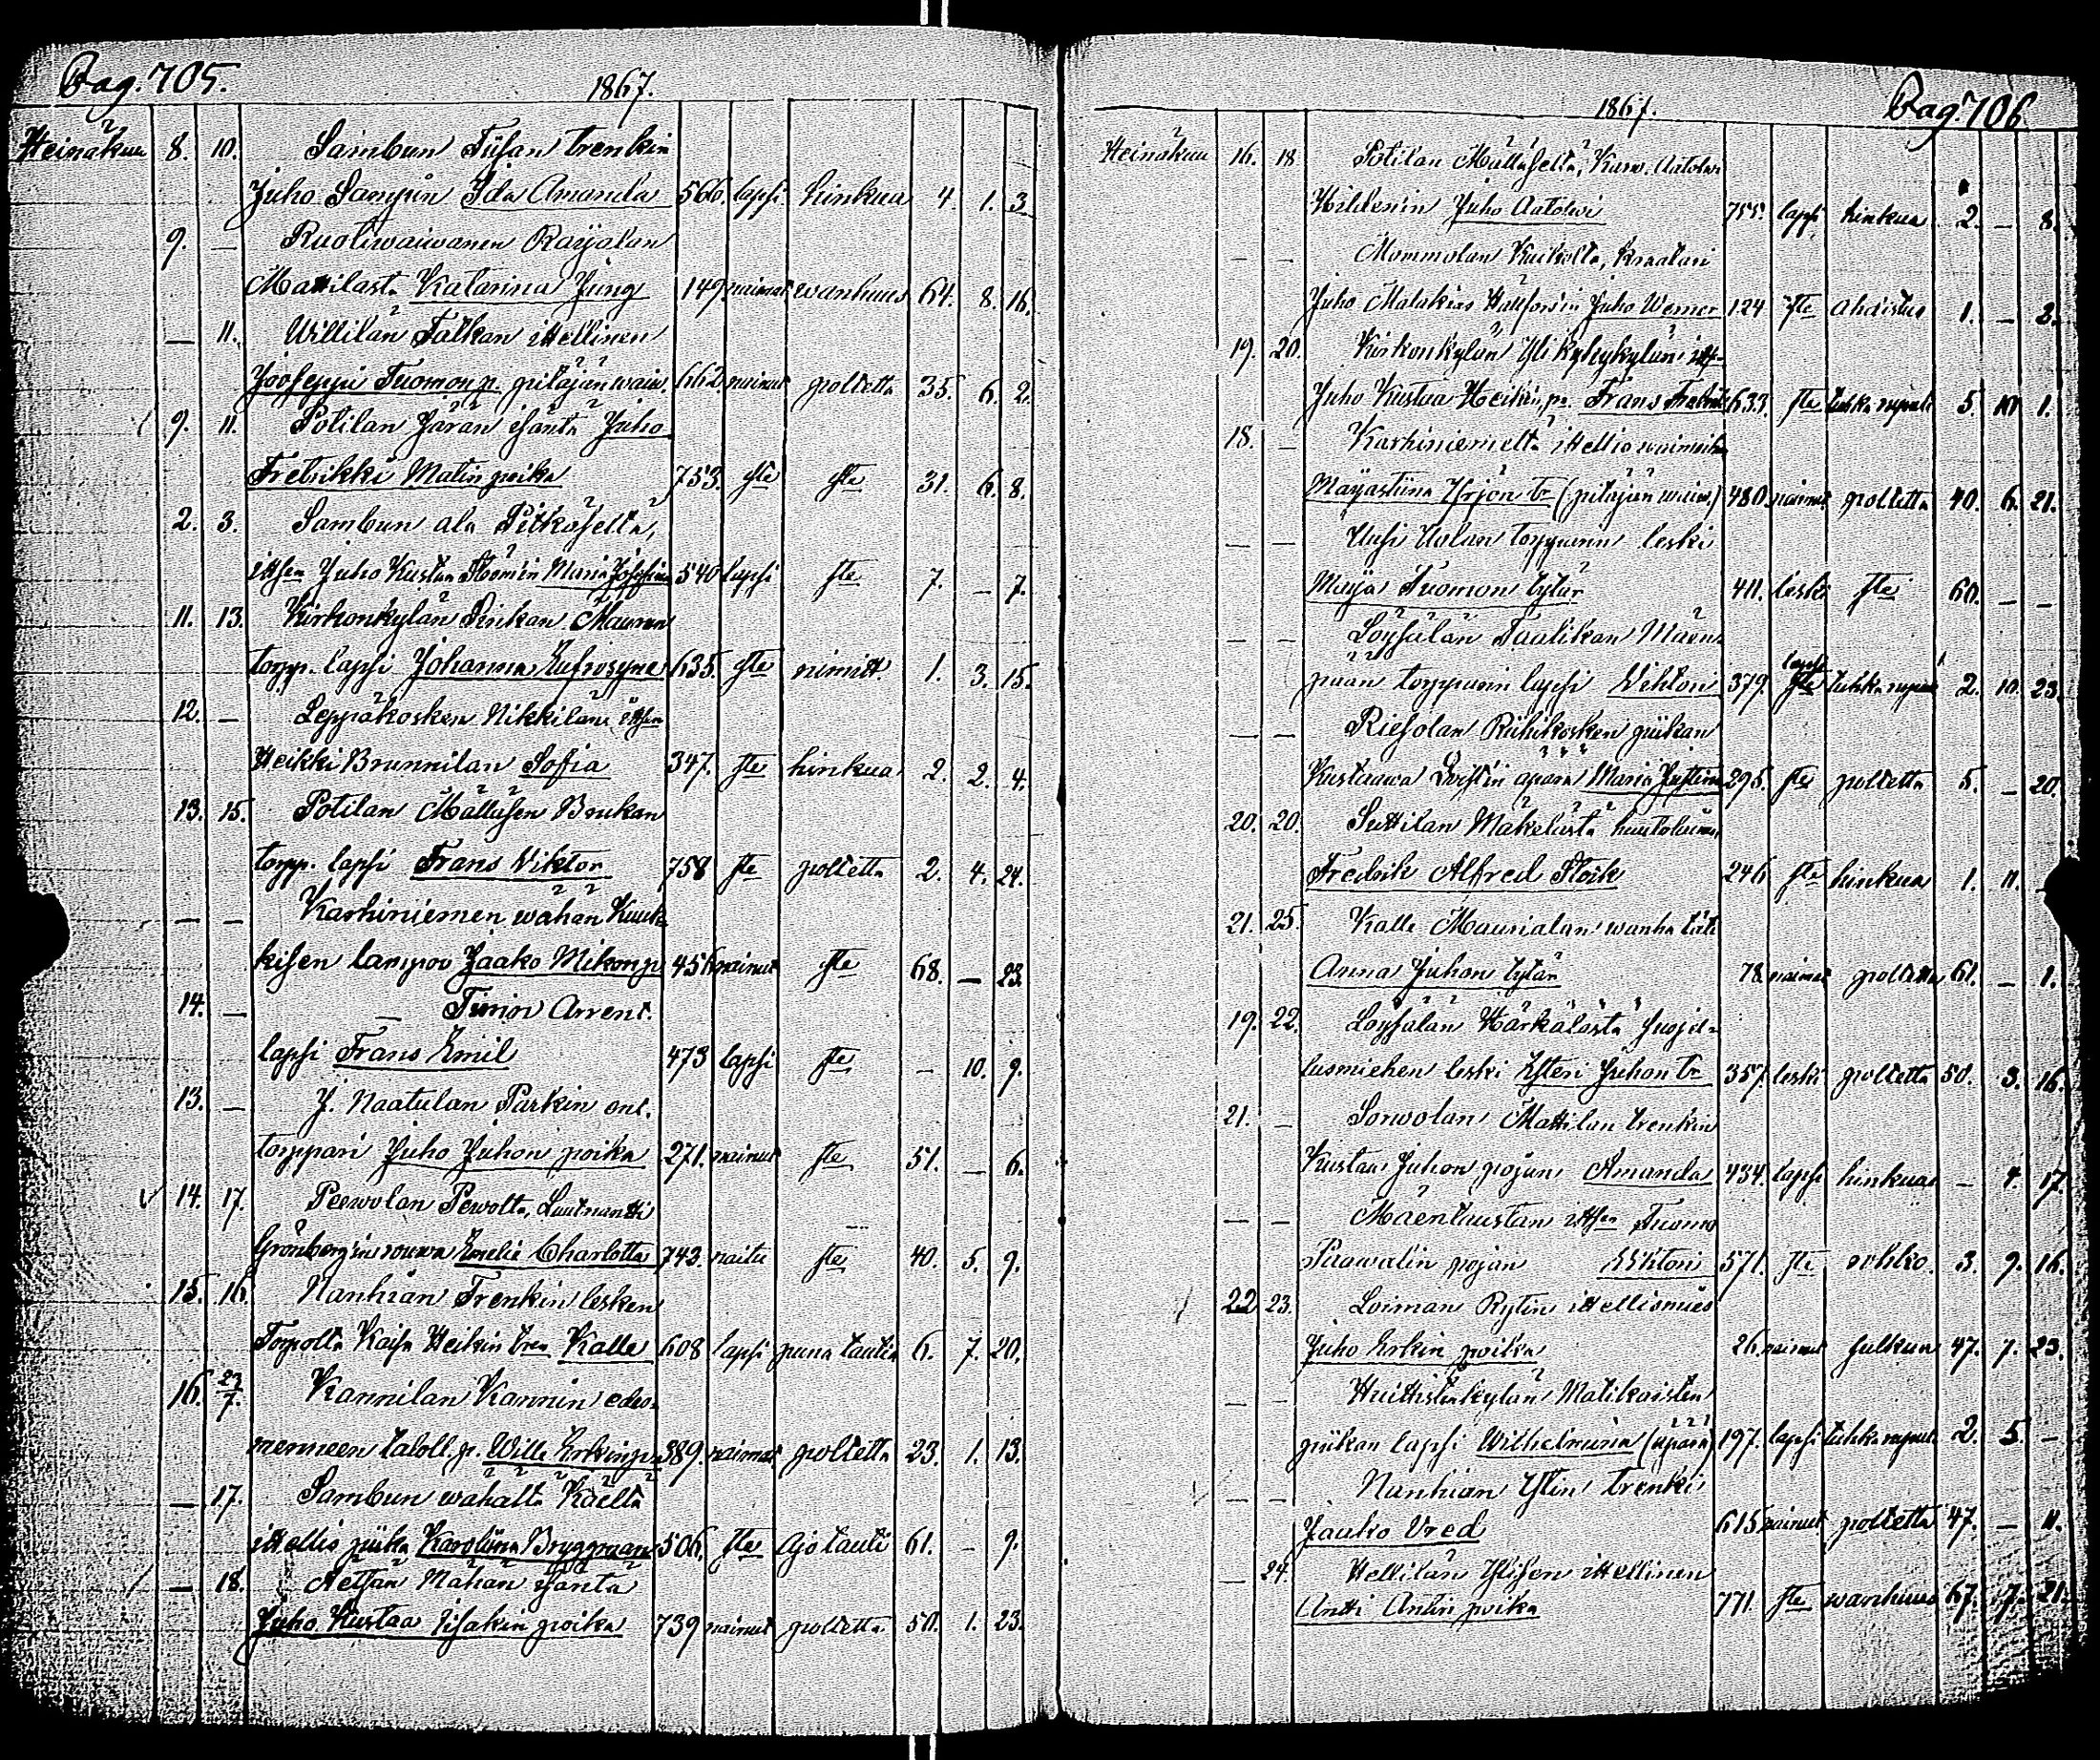 Pag. 705.
1867.
Heinäkuu 8. 10. Sambun Tüfan trenkin
Juho Sampin Ida Amanda 566. lapsi hinkua 4. 1. 3.
9. — Ruotiwaiwanen Raijalan
Mattilasta Katarina Jung 149. nainut wanhuus 64. 8. 16.
— 11. Willilän Talkan ittellinen
Jooseppi Tuomon p. pitäjän waiw. 662 nainut poltetta 35. 6. 2.
9. 11. Potilan Järän isäntä Juho
Fretrikki Matin poika 753. ste ste 31. 6. 8.
2. 3. Sambun ala Pitkäseltä,
ittsen Juho Kustaa Maria Josefina 540 lapsi ste 7. — 7.
11. 13. Kirkonkylän Pinkan Mauren
torpp. lapsi Johanna Eufrosyne 635. ste nimitt. 1. 3. 15.
12. — Leppäkosken Nikkilän ittsen
Heikki Brunnilan Sofia 347. ste hinkua 2. 2. 4.
13. 15. Potilan Mällisen Boukan
torpp. lapsi Frans Viktor 758 ste poltetta 2. 4. 24.
— — Karhiniemen wähän Kuuk-
kisen lampor Jaako Mikonp. 456 nainut ste 68. — 23.
14. — — Timior Arrent.
lapsi Frans Emil 473 lapsi ste — 10. 9.
13. — J. Naatulan Parkin ent.
torppari Juho Juhon poika 271. nainut ste 51. — 6.
14. 17. Peewolan Pewolta, Luutnantti
Grönbergin rouwa Emelie Charlotta 743. naitu ste 40. 5. 9.
15. 16. Nanhian Trenkin lesken
Torpolta Kaisa Heikin tren Kalle 608 lapsi puna tautia 6. 7. 20.
16. 23/7. Kannilan Kannin edes-
menneen taloll. p. Wille Erkinp. 389. nainut poltetta 23. 1. 13.
— 17. Sambun wähältä Käeltä
ittellis piika Karoliina Bryggman 506. ste Ajotauti 61. — 9.
— 18. Aetsän Mahan isäntä
Juho Kustaa Iisakin poika 739 nainut poltetta 50. 1. 23.
Pag. 706.
1867.
Heinäkuu 16. 18 Potilan Mällaseltä, Kuw. Aatolwi
Hildenin Juho Aatolwi 755. lapsi hinkua 2. — 8.
— — Mommolan Kuikolta, kraatari
Juho Malakias Hallforsin Juho Werner 124 ste ahdistus 1. — 2.
19. 20. Kirkonkylän Ylikyhykylän itt-
Juho Kustaa Heikin p. Frans 633. ste tuhkarupuli 5. 10. 1.
18. — Karhiniemeltä ittellis waimoih
Maijastiina Yrjön tr (pitäjän waiw.) 480. nainut poltetta 40. 6. 21.
— — Uusi Uolan torpparin leski
Maija Tuomon tytär 411. leski ste 60. — —
— — Löysälän Taalikan Mäen-
pään torpparin lapsi Wihtori 379. lapsi ste tuhkarupuli 2. 10. 23.
— — Riesolan Riihikosken piikan
Kustaawa äpärä Maria Justina 295. ste poltetta 5. — 20.
20. 20. Suttilan Mäkelästä huutolainen
Fredrik Alfred Floik 246 ste hinkua 1. 11. —
21. 25. Kalle Maurialan wanha täti
Anna Juhon tytär 78. nainut poltetta 61. — 1.
19. 22. Löysälän Härkälästä suojel-
lusmiehen leski Esteri Juhon tr 357. leski poltetta 50. 3. 16.
21. — Sorwolan Mattilan trenkin
Kustaa Juhon pojan Amanda 434. lapsi hinkua — 4. 17.
— — Mäentaustan ittsen Tuomo
Paawalin pojan Wihtori 571. ste rohko. 3. 9. 16.
22 23. Loiman Rytin ittellismies
Juho Erkin poika 26. nainut sulkua 47. 7. 23.
— — Huittistenkylän Matikaisten
piikan lapsi Wilhelmina (äpärä) 197. lapsi tuhkarupul. 2. 5. —
— — Nanhian Ylin trenki
Jaako Vred 615 nainut poltetta 47. — 11.
— 24. Hellilän Ylisen ittellinen
Antti Antin poika 771. ste wanhuus 67. 7. 21.